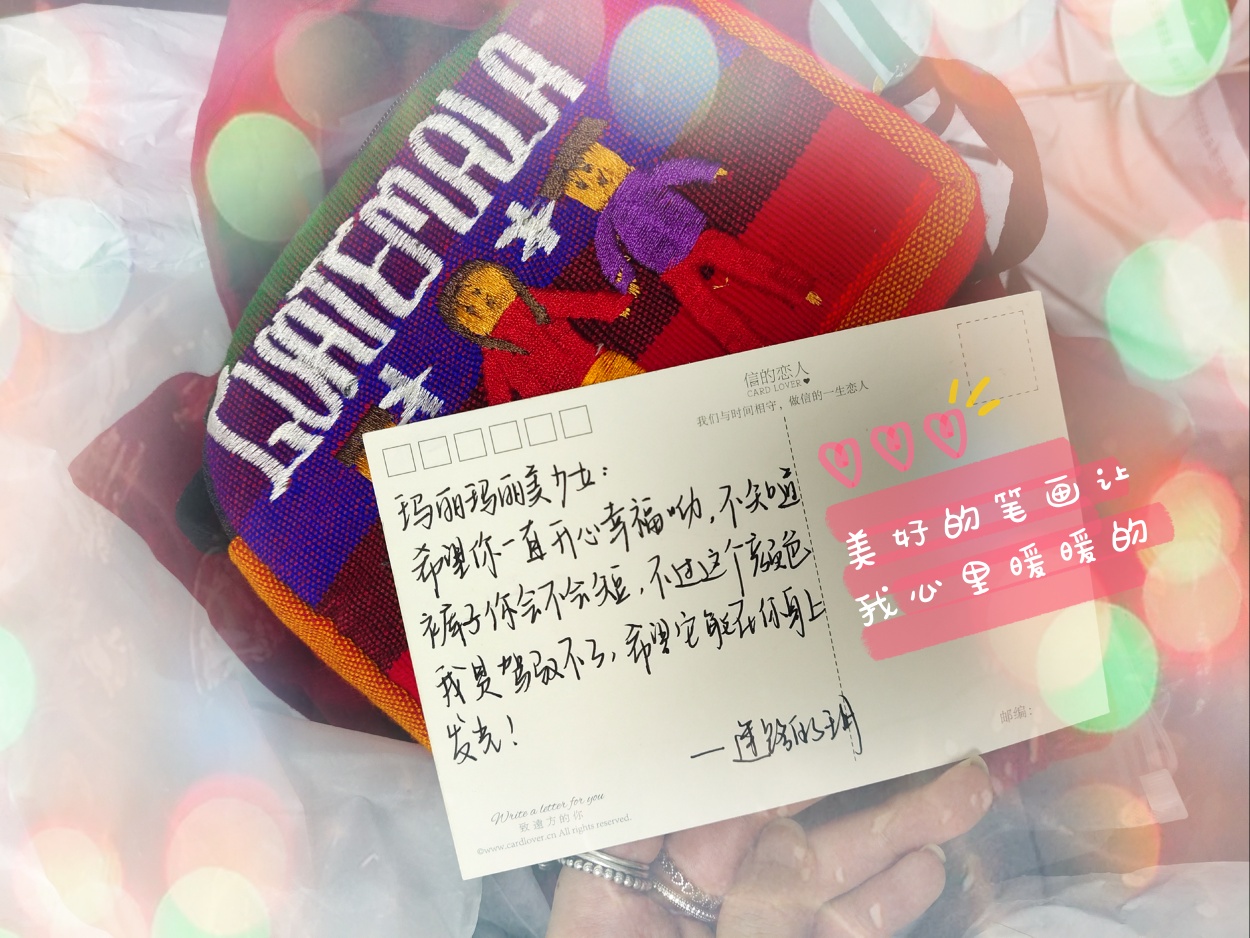 GUATEMALA
信的恋人
CARD LOVER
我们与时间相守，做信的一生恋人
玛丽玛丽美少女：
希望你一直开心幸福呦，不知道
裤子你会不会短，不过这个颜色
我是驾驭不了，希望它能在你身上
发光！
美好的笔画让
我心里暖暖的
邮编：
Write a letter for you
致遠方的你
©www.cardlover.cn All rights reserved.